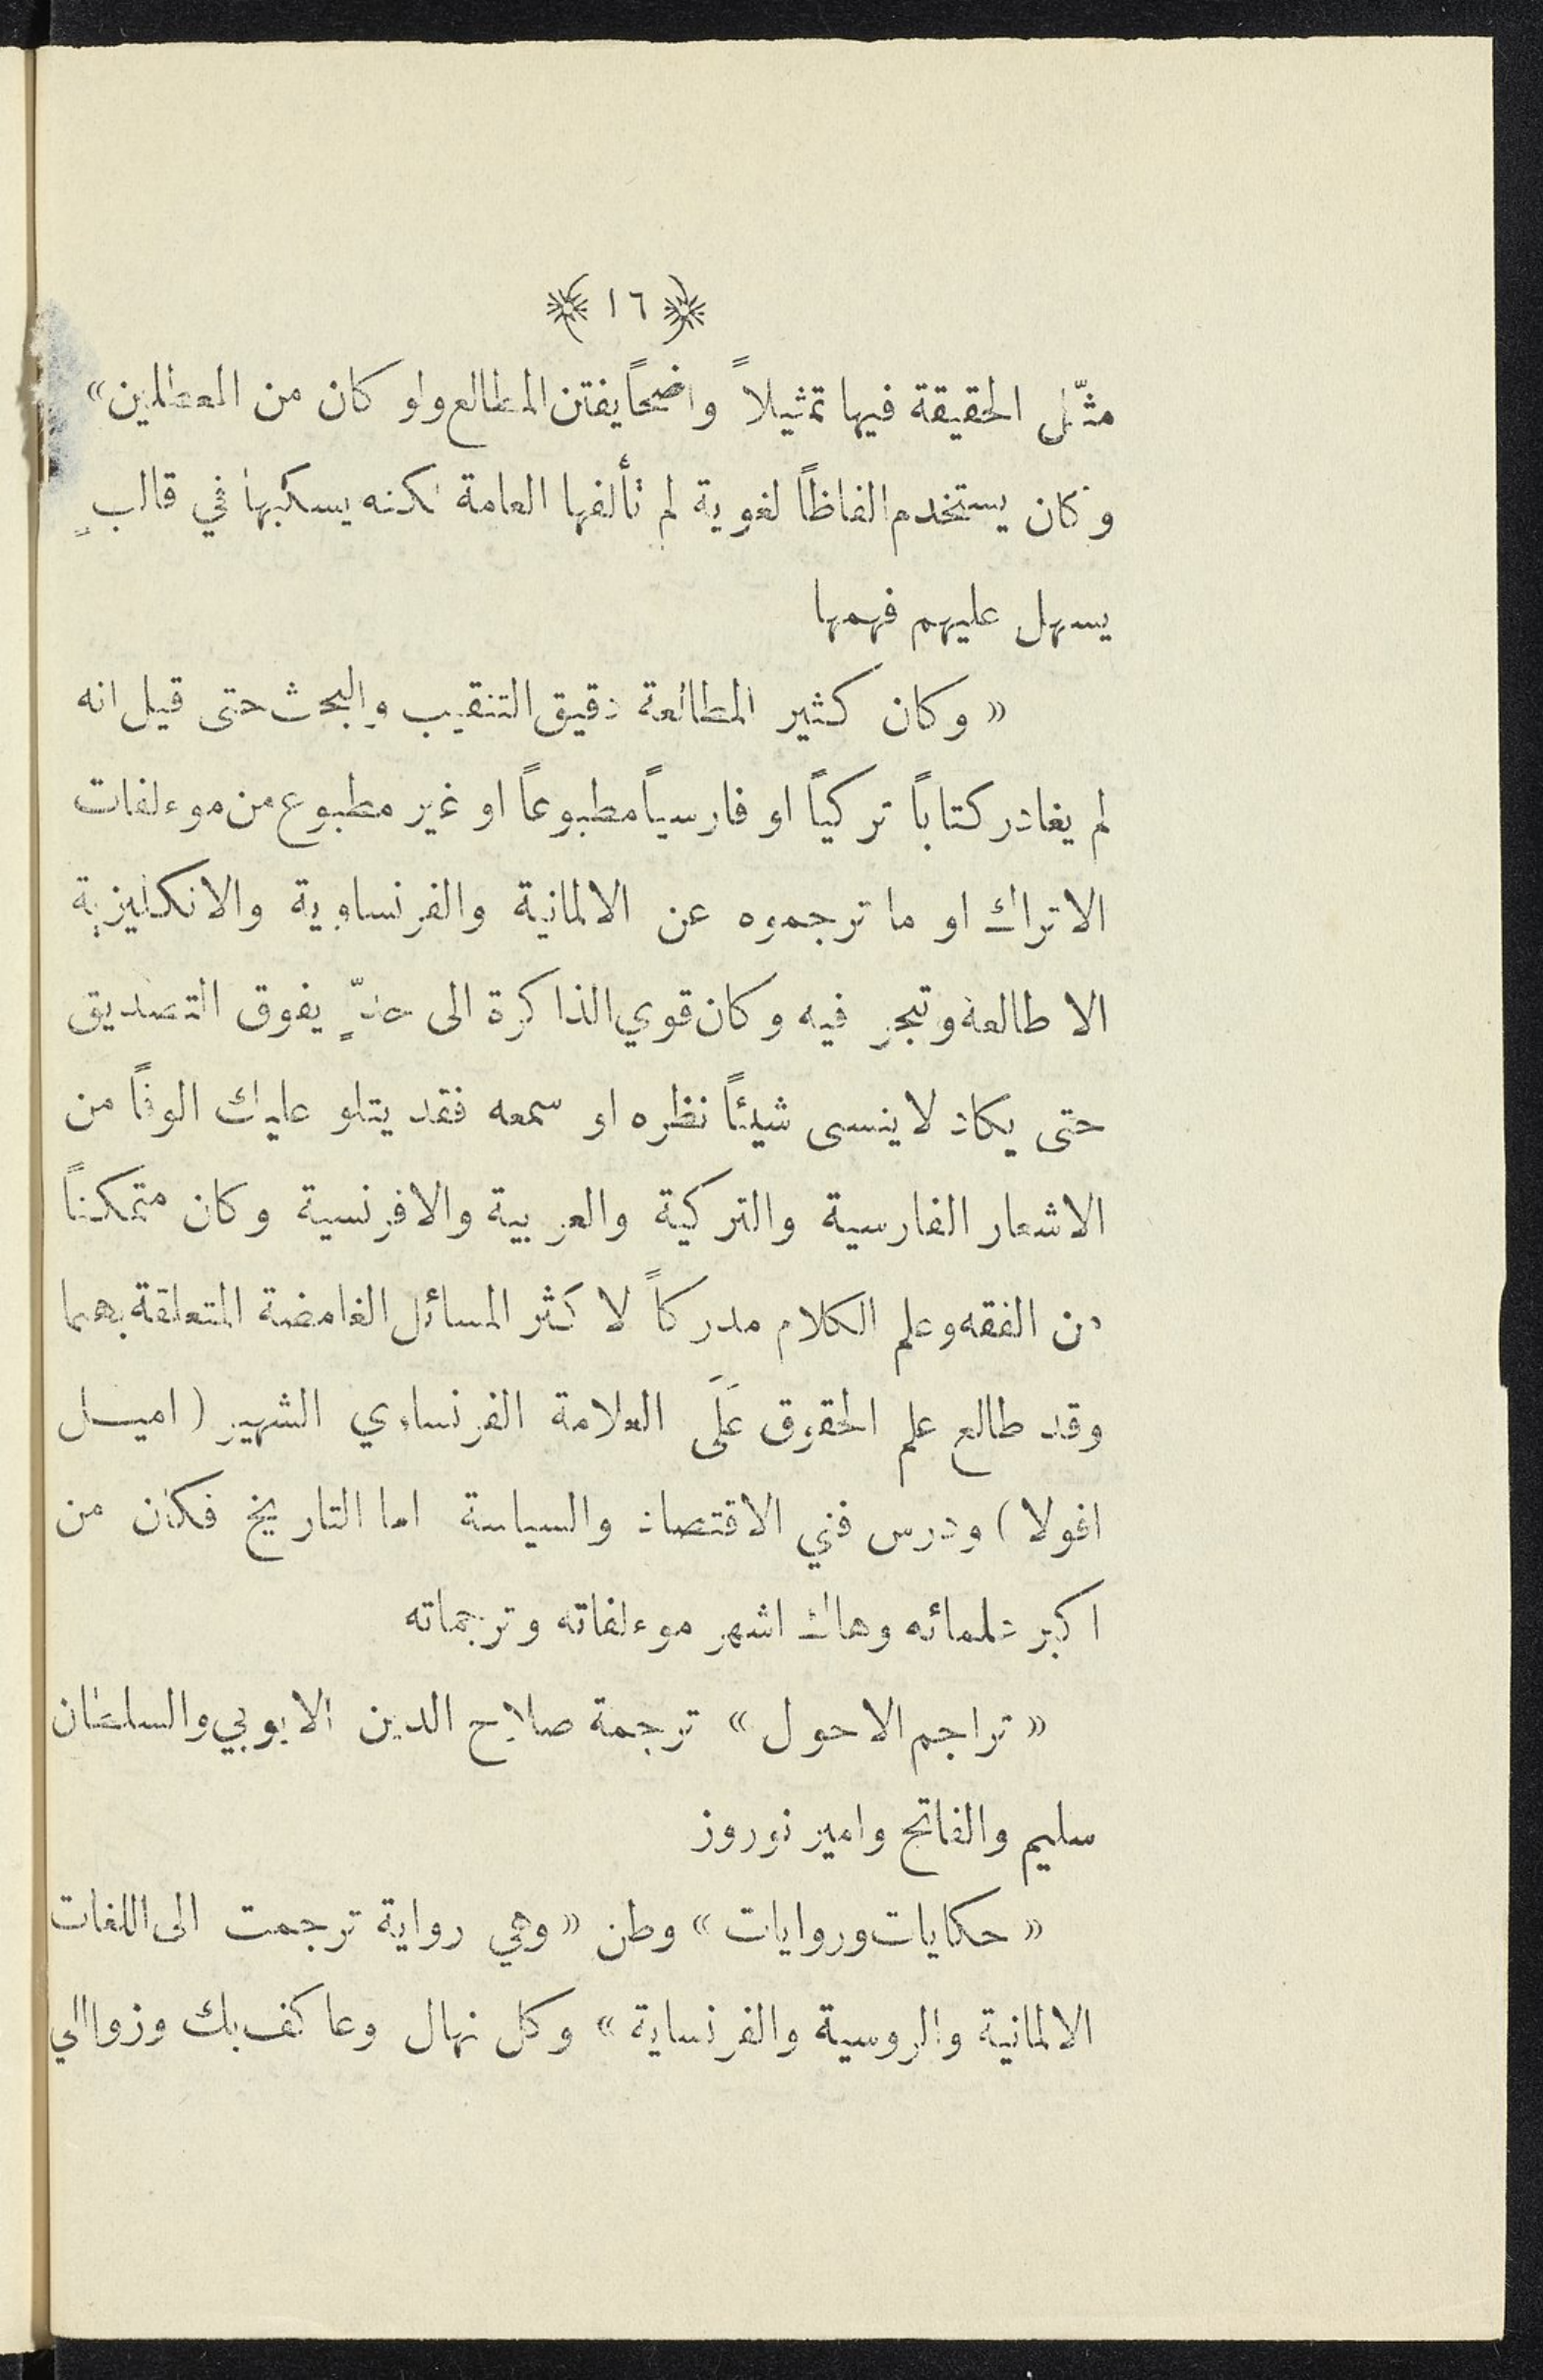 ﴿ ١٦ ﴾
مثّل الحقيقة فيها تمثيلاً واضحاً يفتن المطالع ولو كان من المعطلين »
وكان يستخدم الفاظاً لغوية لم تألفها العامة لكنه يسكبها في قالبٍ
يسهل عليهم فهمها
« وكان كثير المطالعة دقيق التنقيب والبحث حتى قيل انه
لم يغادر كتاباً تركياً او فارسياً مطبوعاً او غير مطبوع من موءلفات
الاتراك او ما ترجموه عن الالمانية والفرنساوية والانكليزية
الا طالعه وتبحر فيه وكان قوي الذاكرة الى حدّ يفوق التصديق
حتى يكاد لا ينسى شيئاً نظره او سمعه فقد يتلو عليك الوفاً من
الاشعار الفارسية والتركية والعربية والافرنسية وكان متمكناً
من الفقه وعلم الكلام مدركاً لاكثر المسائل الغامضة المتعلقة بهما
وقد طالع علم الحقوق عَلَى العلامة الفرنساوي الشهير ( اميل
افولا ) ودرس فني الاقتصاد والسياسة اما التاريخ فكان من
اكبر علمائه وهاك اشهر موءلفاته وترجماته
« تراجم الاحول » ترجمة صلاح الدين الايوبي والسلطان
سليم والفاتح وامير نوروز
« حكايات وروايات » وطن « وهي رواية ترجمت الى اللغات
الالمانية والروسية والفرنساية » وكل نهال وعاكف بك وزواالي